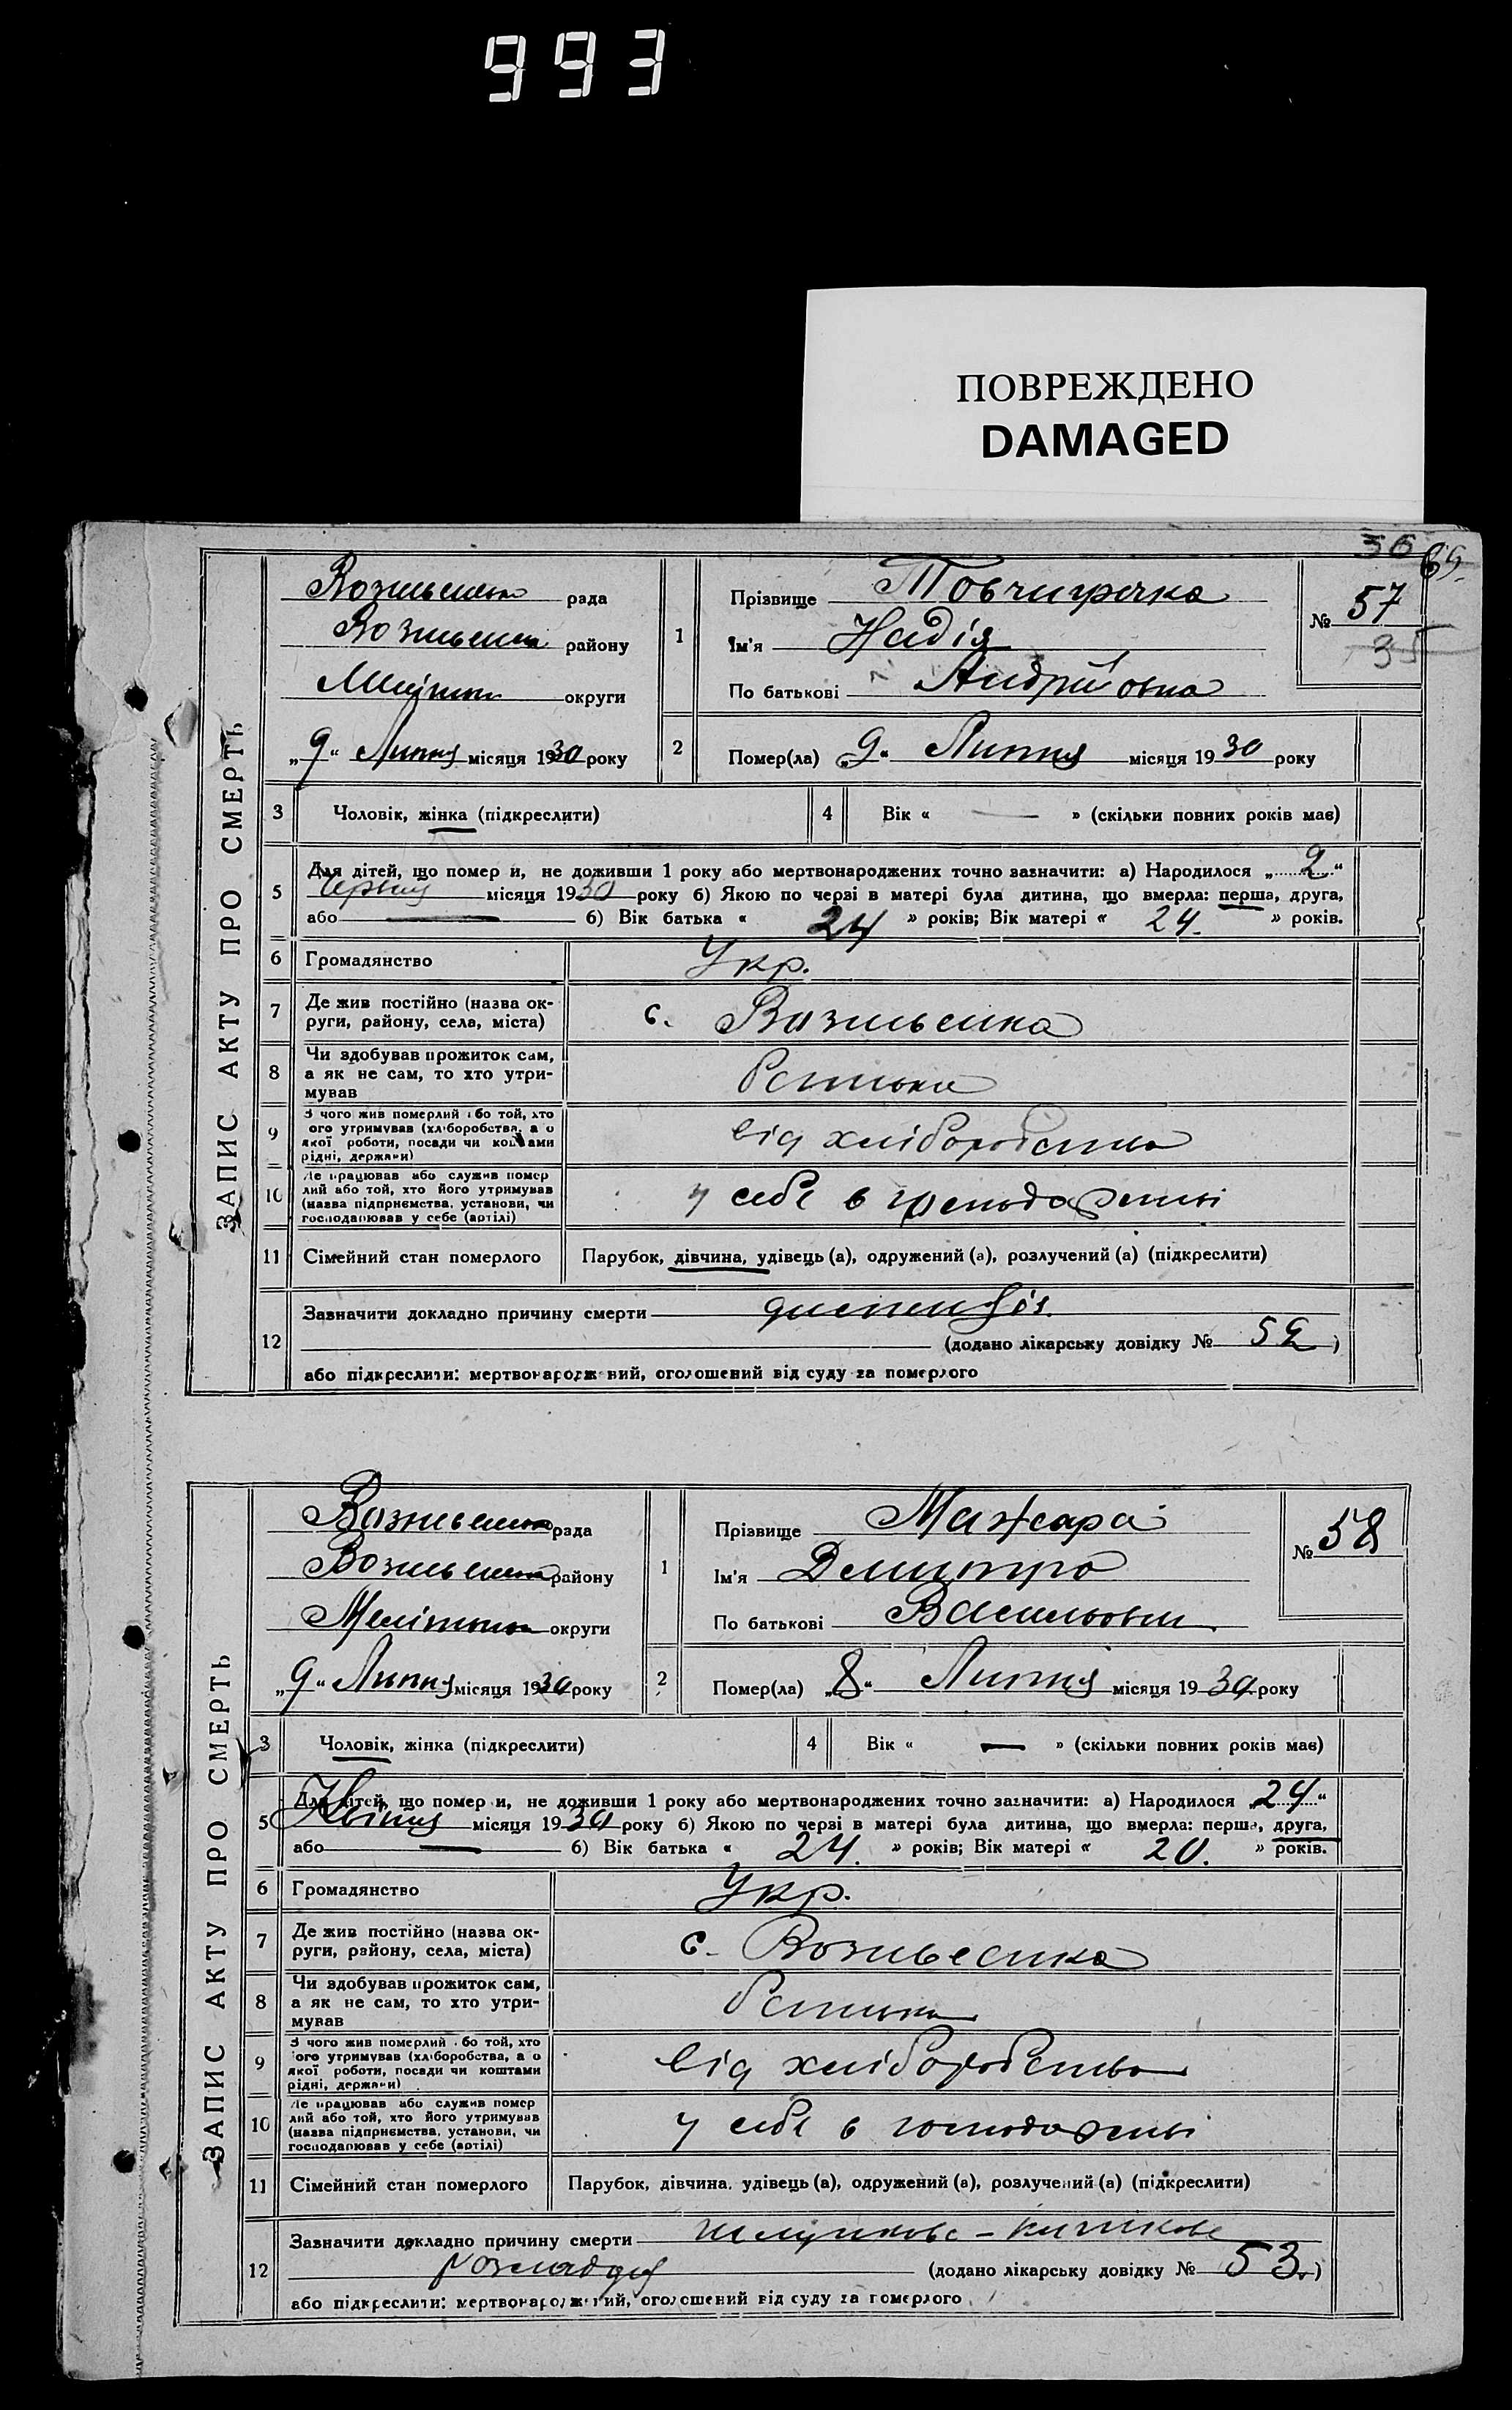 993
ПОВРЕЖДЕНО
DAMAGED
36 69.
ЗАПИС АКТУ ПРО СМЕРТЬ
рада
району
округи
„9“ Липня місяця 1930 року
1
Прізвище
Ім'я Надія
По батькові Андрійовна
№ 57
35
2 Помер(ла) „9“ Липня місяця 1930 року
3 Чоловік, жінка (підкреслити)
4 Вік « — » (скільки повних років має)
5 Для дітей, що помер и, не доживши 1 року або мертвонароджених точно зазначити: а) Народилося „2“
Червня місяця 1930 року б) Якою по черзі в матері була дитина, що вмерла: перша, друга,
або — б) Вік батька « 24 » років; Вік матері « 24. » років.
6 Громадянство Укр.
7 Де жив постійно (назва ок-
руги, району, села, міста) с. Вознесенка
8 Чи здобував прожиток сам,
а як не сам, то хто утри-
мував Батьки
9 З чого жив померлий або той, хто
ого утримував (хліборобства, а о
якої роботи, посади чи коштами
рідні, держави) від хліборобства
10 Де працював або служив помер
лий або той, хто його утримував
(назва підприємства, установи, чи
господарював у себе (артілі) у себе в господарстві
11 Сімейний стан померлого Парубок, дівчина, удівець (а), одружений (а), розлучений (а) (підкреслити)
12 Зазначити докладно причину смерти
(додано лікарську довідку № 52)
або підкреслити: мертвонароджений, оголошений від суду за померлого
ЗАПИС АКТУ ПРО СМЕРТЬ
рада
району
округи
„9“ Липня місяця 1930 року
1
Прізвище Мажара
Ім'я Дмитро
По батькові Васильович
№ 58
2 Помер(ла) „8“ Липня місяця 1930 року
3 Чоловік, жінка (підкреслити)
4 Вік « — » (скільки повних років має)
5 Для дітей, що помер и, не доживши 1 року або мертвонароджених точно зазначити: а) Народилося „24“
Квітня місяця 1930 року б) Якою по черзі в матері була дитина, що вмерла: перша, друга,
або — б) Вік батька « 24. » років; Вік матері « 20. » років.
6 Громадянство Укр.
7 Де жив постійно (назва ок-
руги, району, села, міста) с. Вознесенка
8 Чи здобував прожиток сам,
а як не сам, то хто утри-
мував Батьки
9 З чого жив померлий або той, хто
ого утримував (хліборобства, а о
якої роботи, посади чи коштами
рідні, держави) від хліборобства
10 Де працював або служив помер
лий або той, хто його утримував
(назва підприємства, установи, чи
господарював у себе (артілі) у себе в господарстві
11 Сімейний стан померлого Парубок, дівчина, удівець (а), одружений (а), розлучений (а) (підкреслити)
12 Зазначити докладно причину смерти шлунково-кишкове
(додано лікарську довідку № 53.)
або підкреслити: мертвонароджений, оголошений від суду за померлого